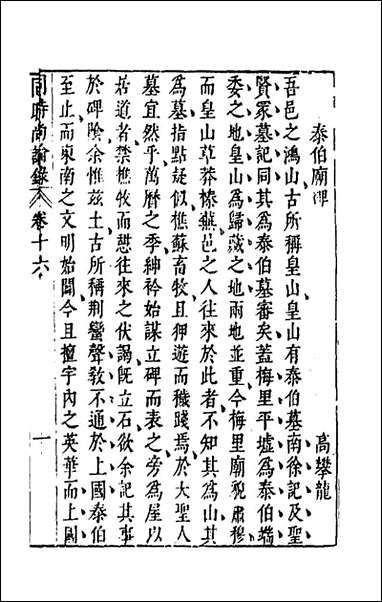 泰伯廟碑
高攀龍
吾邑之鴻山古所稱皇山皇山有泰伯墓南徐記及聖
賢冢墓記同其為泰伯墓審矣蓋梅里平墟為泰伯端
委之地皇山為歸藏之地兩地並重今梅里廟貌肅穆
而皇山草莽榛蕪邑之人往來於此者不知其為山其
為墓指點疑似樵蘇畜牧且狎遊而穢踐焉於大聖人
墓宜然乎萬曆之季紳衿始謀立碑而表之旁為屋以
居道者禁樵牧而憇往來之伏謁既立石欲余記其事
於碑陰余惟茲土古所稱荆蠻聲敎不通於上國泰伯
至止而東南之文明始闢今且擅宇內之英華而上國
同時尚論錄
卷十六
一